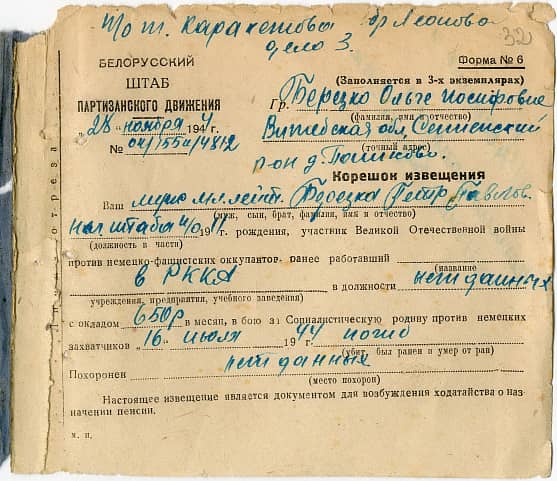 По т. Карахотова бр Леонова
дело 3.
32
БЕЛОРУССКИЙ
ШТАБ
ПАРТИЗАНСКОГО ДВИЖЕНИЯ
„28 ноября 1944
№ 04/155а/4812
Форма № 6
(Заполняется в 3-х экземплярах)
Гр. Берецко Ольге Иосифовне
(фамилия, имя и отчество)
Витебская обл, Сенненский
(точный адрес)
р-он д.
Корешок извещения
Ваш муж мл лейт. Берецка Петр Павлов.
(муж, сын, брат, фамилия, имя и отчество)
нач штаба п/о 1911 г. рождения, участник Великой Отечественной войны
(должность в части)
против немецко-фашистских оккупантов, ранее работавший
(название
в РККА в должности нет данных
учреждения, предприятия, учебного заведения)
с окладом 650р в месяц, в бою за Социалистическую родину против немецких
захватчиков „16 июля 1944 погиб
(убит, был ранен и умер от ран)
Похоронен нет данных
(место похорон)
Настоящее извещение является документом для возбуждения ходатайства о наз-
начении пенсии.
м. п.